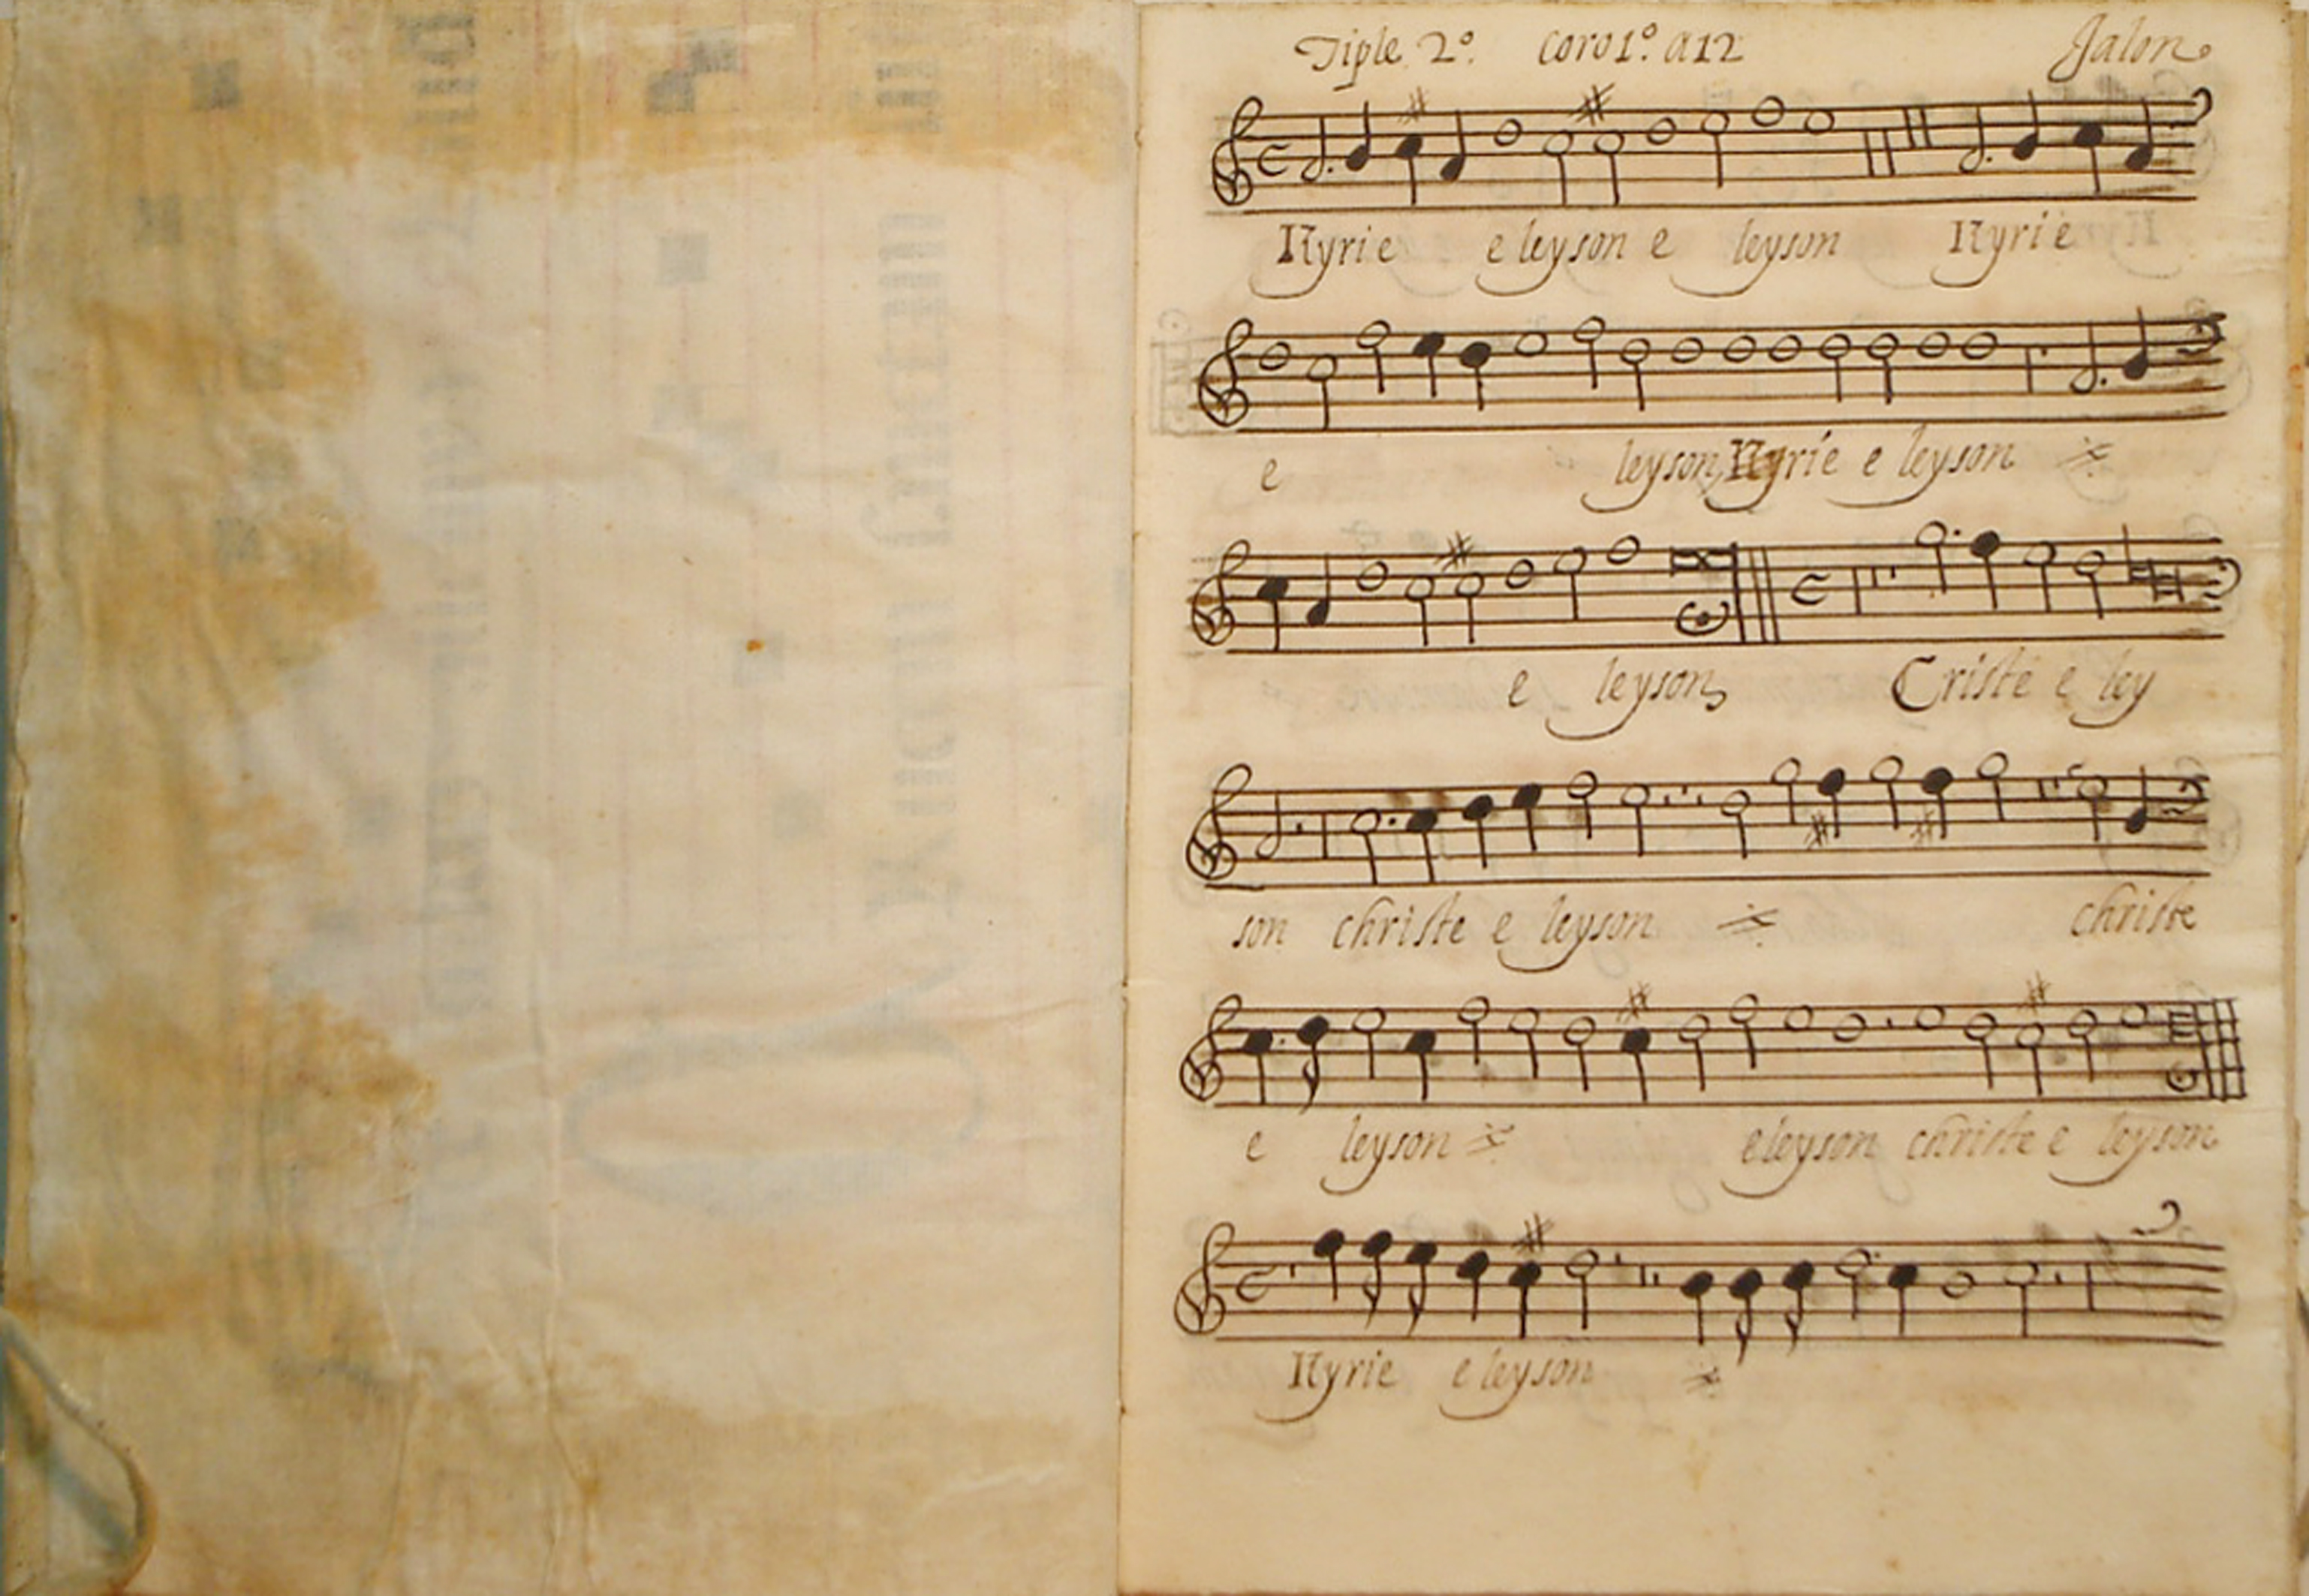 Tiple 2º. Coro 1º. a 12 Jalon.
Kyrie eleyson e leyson Kyrie
e leyson, Kyrie e leyson
e leyson,
Criste e ley
son christe e leyson christe
e leyson eleyson christe e leyson
Kyrie eleyson